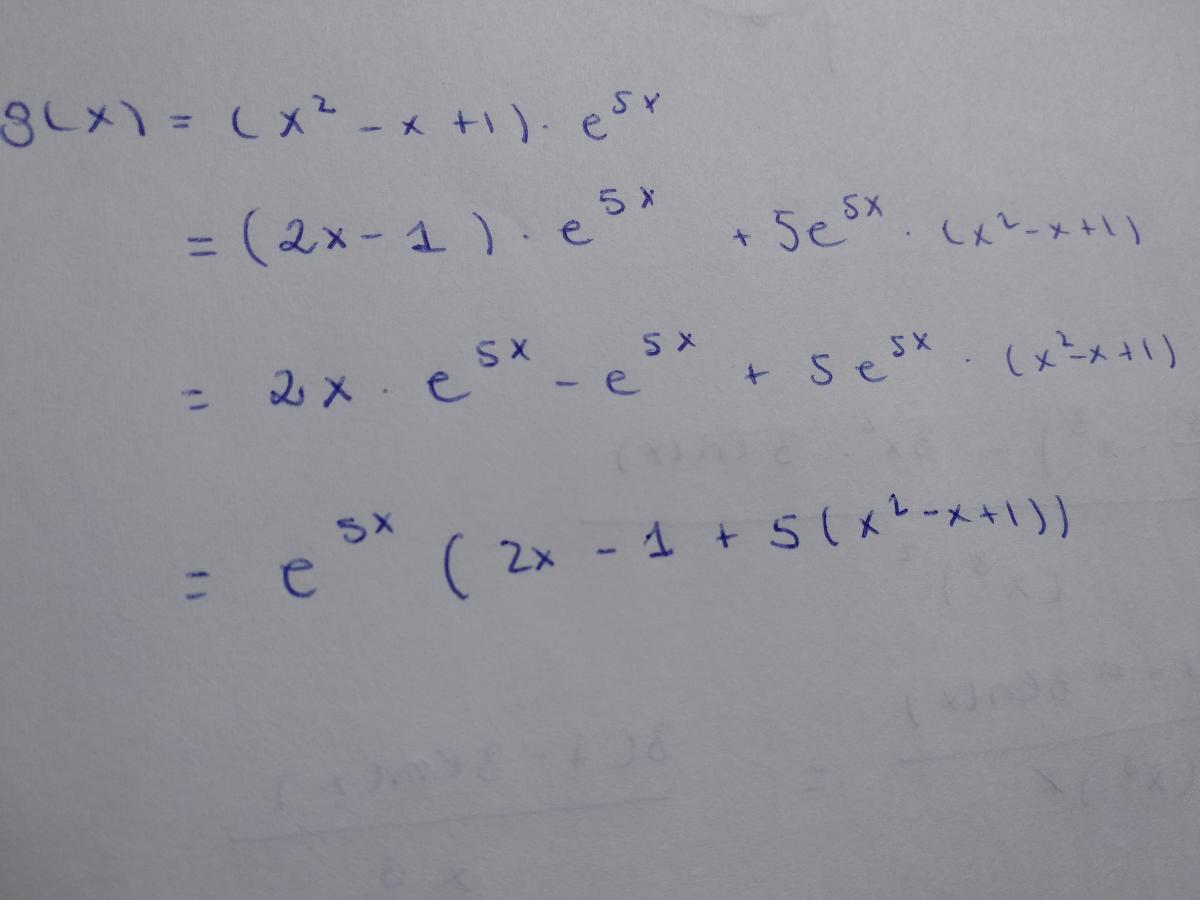 g(x) = (x² - x + 1) · e⁵ˣ
= (2x - 1) · e⁵ˣ + 5e⁵ˣ · (x² - x + 1)
= 2x · e⁵ˣ - e⁵ˣ + 5e⁵ˣ · (x² - x + 1)
= e⁵ˣ (2x - 1 + 5(x² - x + 1))